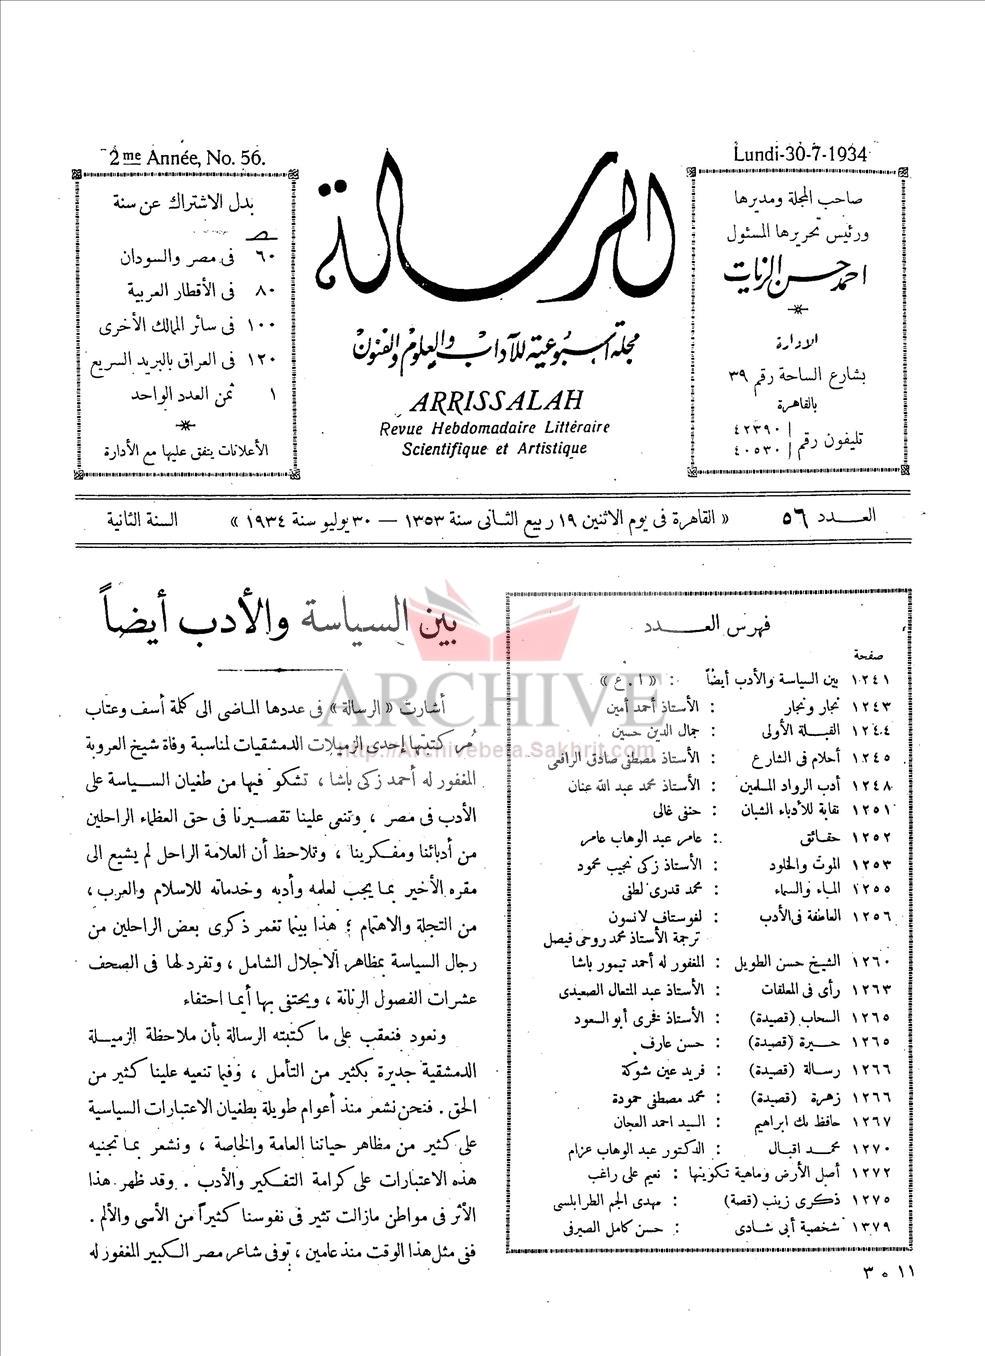 Lundi-30-7-1934
2me Année, No. 56.
صاحب المجلة ومديرها
ورئيس تحريرها المسئول
احمد حسن الزيات
الادارة
بشارع الساحة رقم ٣٩
بالقاهرة
تليفون رقم
٤٢٣٩٠
٤٠٥٣٠
الرسالة
مجلة أسبوعية للآداب والعلوم والفنون
ARRISSALAH
Revue Hebdomadaire Littéraire
Scientifique et Artistique
بدل الاشتراك عن سنة
٦٠ فى مصر والسودان
٨٠ فى الأقطار العربية
١٠٠ فى سائر الممالك الأخرى
١٢٠ فى العراق بالبريد السريع
١ ثمن العدد الواحد
الأعلانات يتفق عليها مع الأدارة
العـــدد ٥٦ « القاهرة فى يوم الاثنين ١٩ ربيع الثانى سنة ١٣٥٣ — ٣٠ يوليو سنة ١٩٣٤ » السنة الثانية
فهرس العـــدد
صفحة
١٢٤١ بين السياسة والأدب أيضاً : « ا . ع »
١٢٤٣ نجار ونجار : الأستاذ أحمد أمين
١٢٤٤ القبـــلة الأولى : جمال الدين حسين
١٢٤٥ أحلام فى الشارع : الأستاذ مصطفى صادق الرافعى
١٢٤٨ أدب الرواد المسلمين : الأستاذ محمد عبد الله عنان
١٢٥١ نقابة للأدباء الشبان : حنفى غالى
١٢٥٢ حقـائق : عامر عبد الوهاب عامر
١٢٥٣ الموت والخلود : الأستاذ زكى نجيب محمود
١٢٥٥ المـاء والسماء : محمد قدرى لطفى
١٢٥٦ العاطفة فى الأدب : لغوستاف لانسون
ترجمة الأستاذ محمد روحى فيصل
١٢٦٠ الشيخ حسن الطويل : المغفور له أحمد تيمور باشا
١٢٦٣ رأى فى المعلقات : الأستاذ عبد المتعال الصعيدى
١٢٦٥ السحاب (قصيدة) : الأستاذ فخرى أبو السعود
١٢٦٥ حـــيرة (قصيدة) : حسن عارف
١٢٦٦ رسالة (قصيدة) : فريد عين شوكة
١٢٦٦ زهرة (قصيدة) : محمد مصطفى حمودة
١٢٦٧ حافظ بك ابراهيم : السيد احمد العجان
١٢٧٠ محمـد اقبـال : الدكتور عبد الوهاب عزام
١٢٧٢ أصل الأرض وماهية تكوينها : نعيم على راغب
١٢٧٥ ذكرى زينب (قصة) : مهدى الجم الطرابلسى
١٣٧٩ شخصية أبى شادى : حسن كامل الصيرفى
١١ ٥ ٣
بين السياسة والأدب أيضاً
أشارت « الرسالة » فى عددها الماضى الى كلمة أسف وعتاب
مُر كتبتها إحدى الزميلات الدمشقيات لمناسبة وفاة شيخ العروبة
المغفور له أحمد زكى باشا ، تشكو فيها من طغيان السياسة على
الأدب فى مصر ، وتنعى علينا تقصيرنا فى حق العظماء الراحلين
من أدبائنا ومفكرينا ، وتلاحظ أن العلامة الراحل لم يشيع الى
مقره الأخير بمـا يجب لعلمه وأدبه وخدماته للاسلام والعرب ،
من التجلة والاهتمام ؛ هذا بينما تغمر ذكرى بعض الراحلين من
رجال السياسة بمظاهر الاجلال الشامل ، وتفرد لها فى الصحف
عشرات الفصول الرنانة ، ويحتفى بها أيمـا احتفاء
ونعود فنعقب على ما كتبته الرسالة بأن ملاحظة الزميـــلة
الدمشقية جديرة بكثير من التأمل ، وفيما تنعيه علينا كثير من
الحق . فنحن نشعر منذ أعوام طويلة بطغيان الاعتبارات السياسية
على كثير من مظاهر حياتنا العامة والخاصة ، ونشعر بمـا تجنيه
هذه الاعتبارات على كرامة التفكير والأدب . وقد ظهر هذا
الأثر فى مواطن مازالت تثير فى نفوسنا كثيراً من الأسى والألم .
ففى مثل هذا الوقت منذ عامين ، توفى شاعر مصر الكبير المغفور له
ARCHIVE
http://Archivebeta.Sakhrit.com